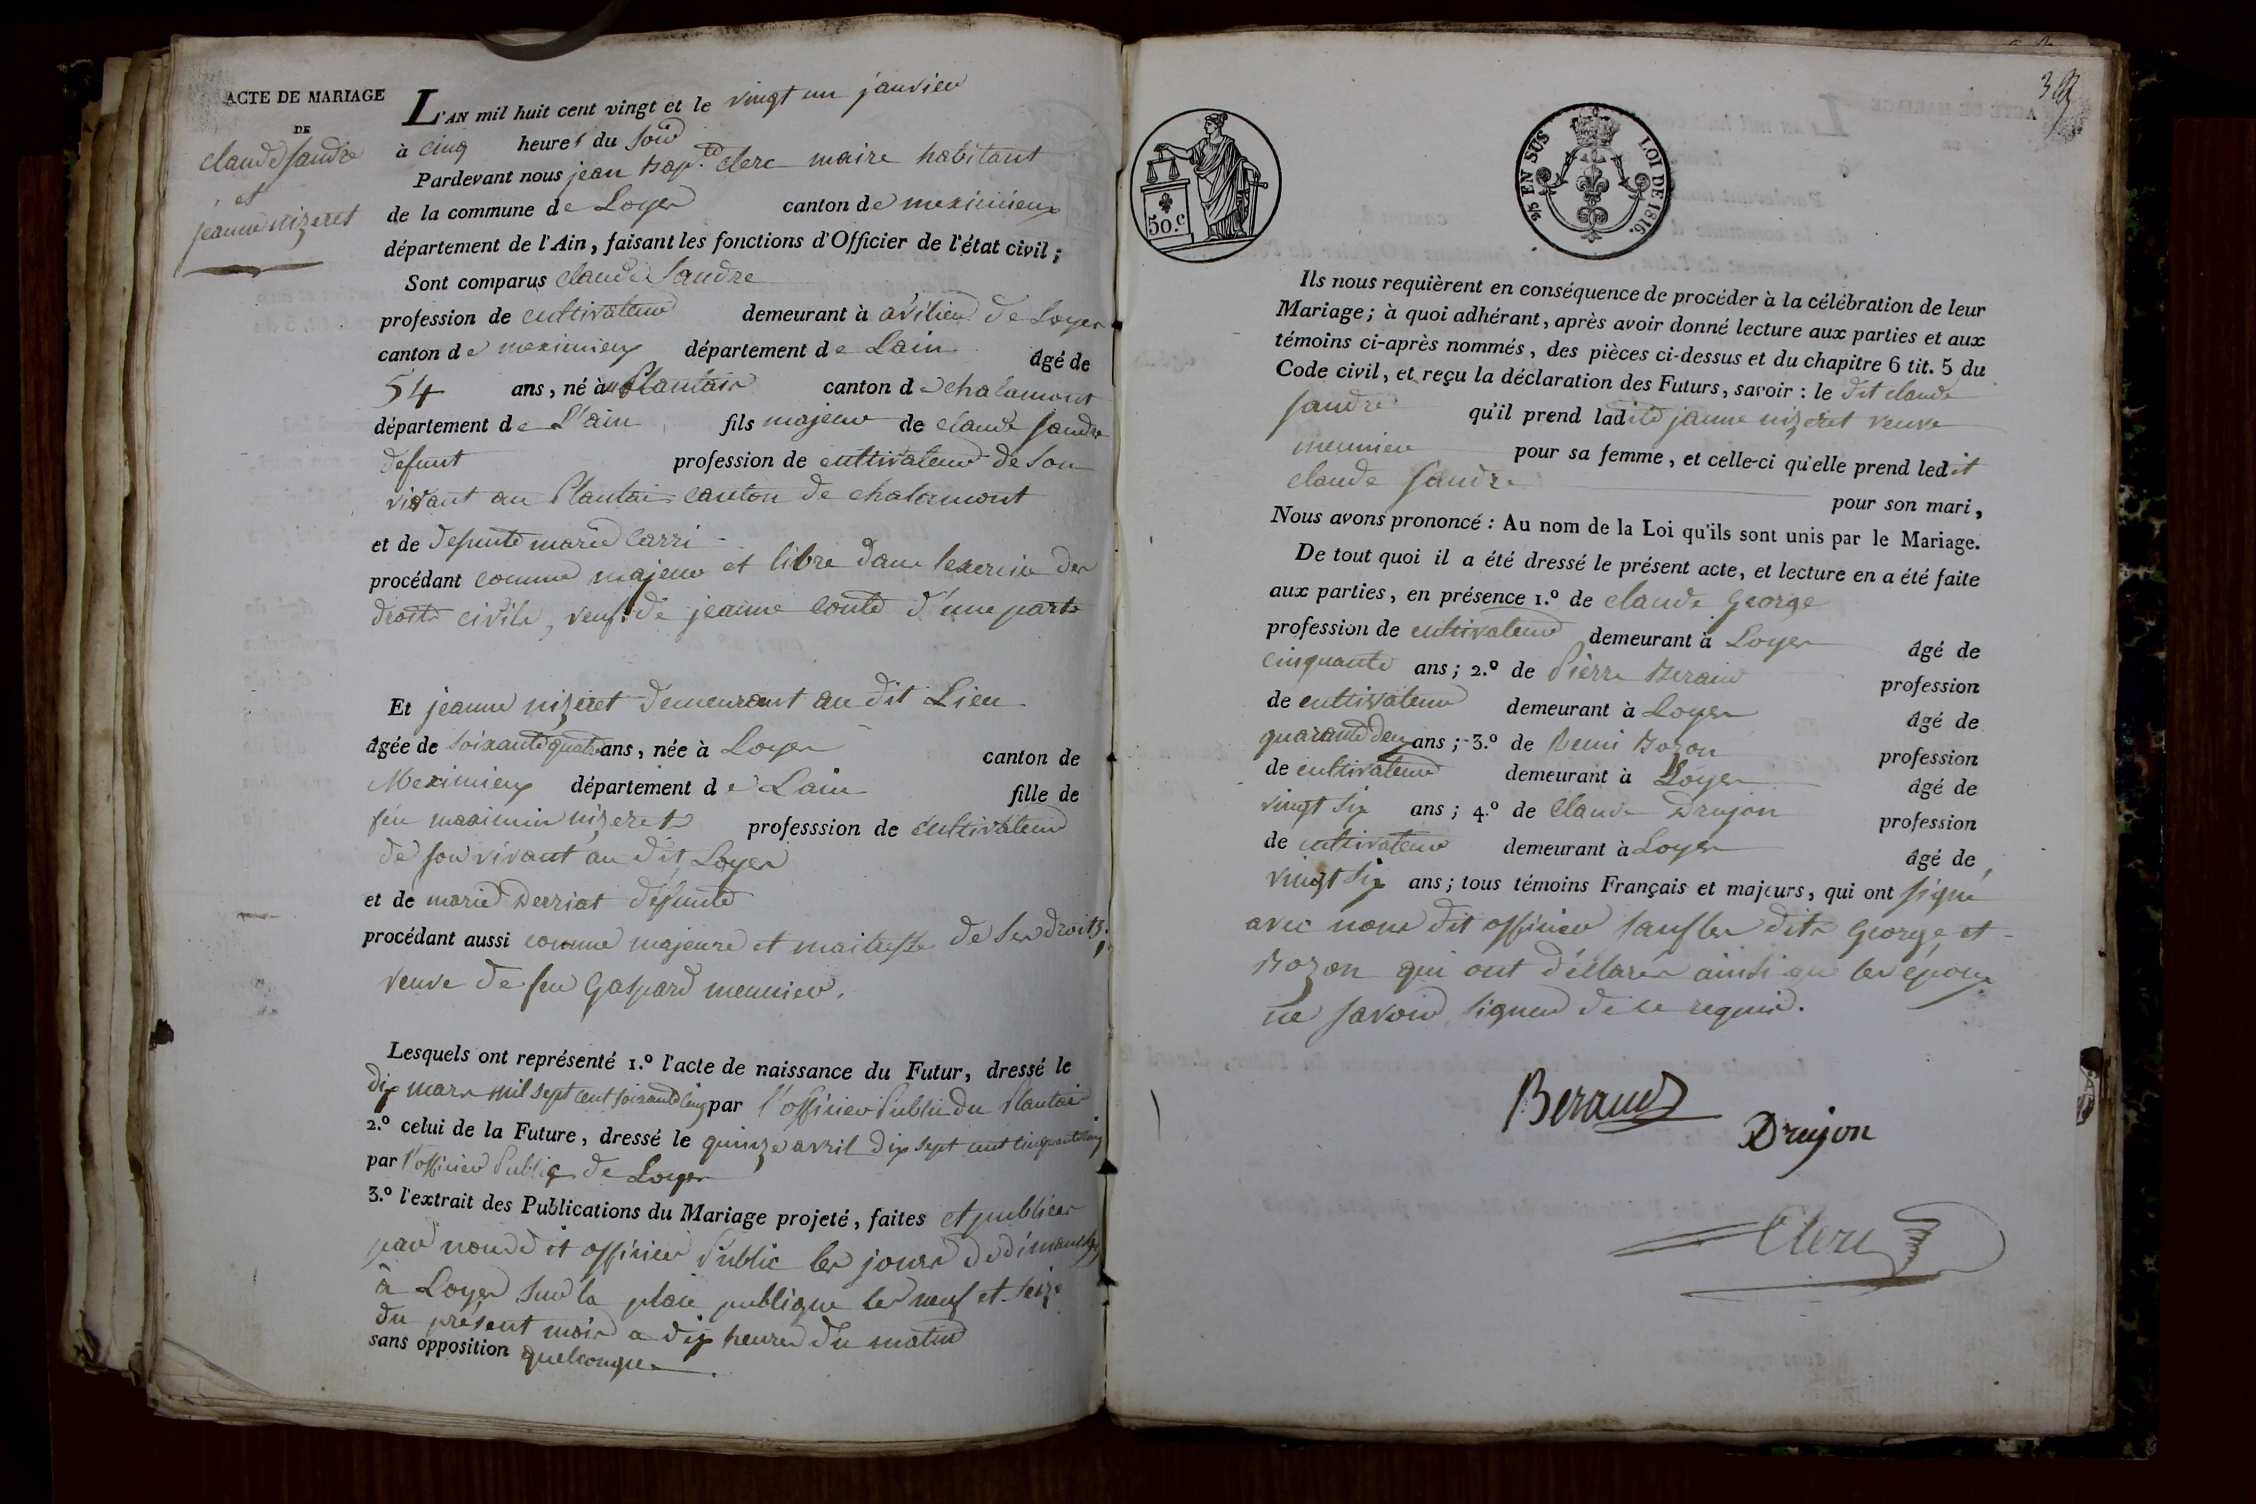 ACTE DE MARIAGE
DE
claude Sandre
et
jeanne nizeret
L'AN mil huit cent vingt et le vingt un janvier
à cinq heures du soir
Pardevant nous jean Bap.te Clerc maire habitant
de la commune de Loyer canton de meximieux
département de l'Ain, faisant les fonctions d'Officier de l'état civil;
Sont comparus claude Sandre
profession de cultivateur demeurant à de Loyer
canton de meximieux département de Lain âgé de
54 ans, né à Plantair canton de chalamont
département de l'ain fils majeur de claude Sandre
defunt profession de cultivateur de son
vivant au Plantai canton de chalamont
et de defunte marie Carri
procédant comme majeur et libre dans lexercice des
droits civils, veuf de jeanne Conte d'une part
Et jeanne nizeret demeurant au dit Lieu
âgée de soixante quatre ans, née à Loyer canton de
Meximieux département de Lain fille de
feu maximin nizeret professsion de cultivateur
de son vivant au dit Loyer
et de marie Derriat défunte
procédant aussi comme majeure et maitresse de ses droits,
veuve de feu Gaspard meunier.
Lesquels ont représenté 1.º l'acte de naissance du Futur, dressé le
dix mars mil sept cent soixante cinq par l'officier Public du Plantair
2.º celui de la Future, dressé le quinze avril dix sept cent cinquante cinq
par l'officier Public de Loyer
3.º l'extrait des Publications du Mariage projeté, faites et publiées
par nous dit officier Public les jours de dimanche
à Loyer sur la place publique les neuf et seize
du présent mois a dix heures du matin
sans opposition quelconque.
50.c
2/5 EN SUS LOI DE 1816.
Ils nous requièrent en conséquence de procéder à la célébration de leur
Mariage; à quoi adhérant, après avoir donné lecture aux parties et aux
témoins ci-après nommés, des pièces ci-dessus et du chapitre 6 tit. 5 du
Code civil, et reçu la déclaration des Futurs, savoir: le dit claude
Sandre qu'il prend ladite jeanne nizeret veuve
meunier pour sa femme, et celle-ci qu'elle prend ledit
claude Sandre pour son mari,
Nous avons prononcé: Au nom de la Loi qu'ils sont unis par le Mariage.
De tout quoi il a été dressé le présent acte, et lecture en a été faite
aux parties, en présence 1.º de claude George
profession de cultivateur demeurant à Loyer âgé de
cinquante ans; 2.º de Pierre Beraud profession
de cultivateur demeurant à Loyer âgé de
quarante deux ans; 3.º de Remi Bozon profession
de cultivateur demeurant à Loyer âgé de
vingt six ans; 4.º de Claude Drujon profession
de cultivateur demeurant à Loyer âgé de
vingt six ans; tous témoins Français et majeurs, qui ont signé
avec nous dit officier sauf les dits George et
Bozon qui ont déclarés ainsi que les époux
ne savoir signer de ce requis.
Beraud
Drujon
Clerc